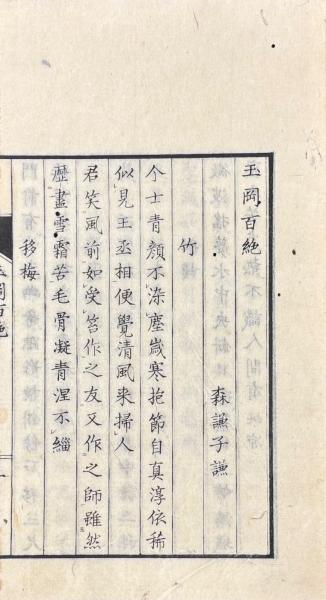 玉岡百絶
森謙子謙
竹
个士青顔不染塵歳寒抱節自真淳依稀
似見王丞相便覺清風来掃人
君笑風前如受笞作之友又作之師雖然
歴盡雪霜苦毛骨凝青涅不緇
移梅
玉岡百絶